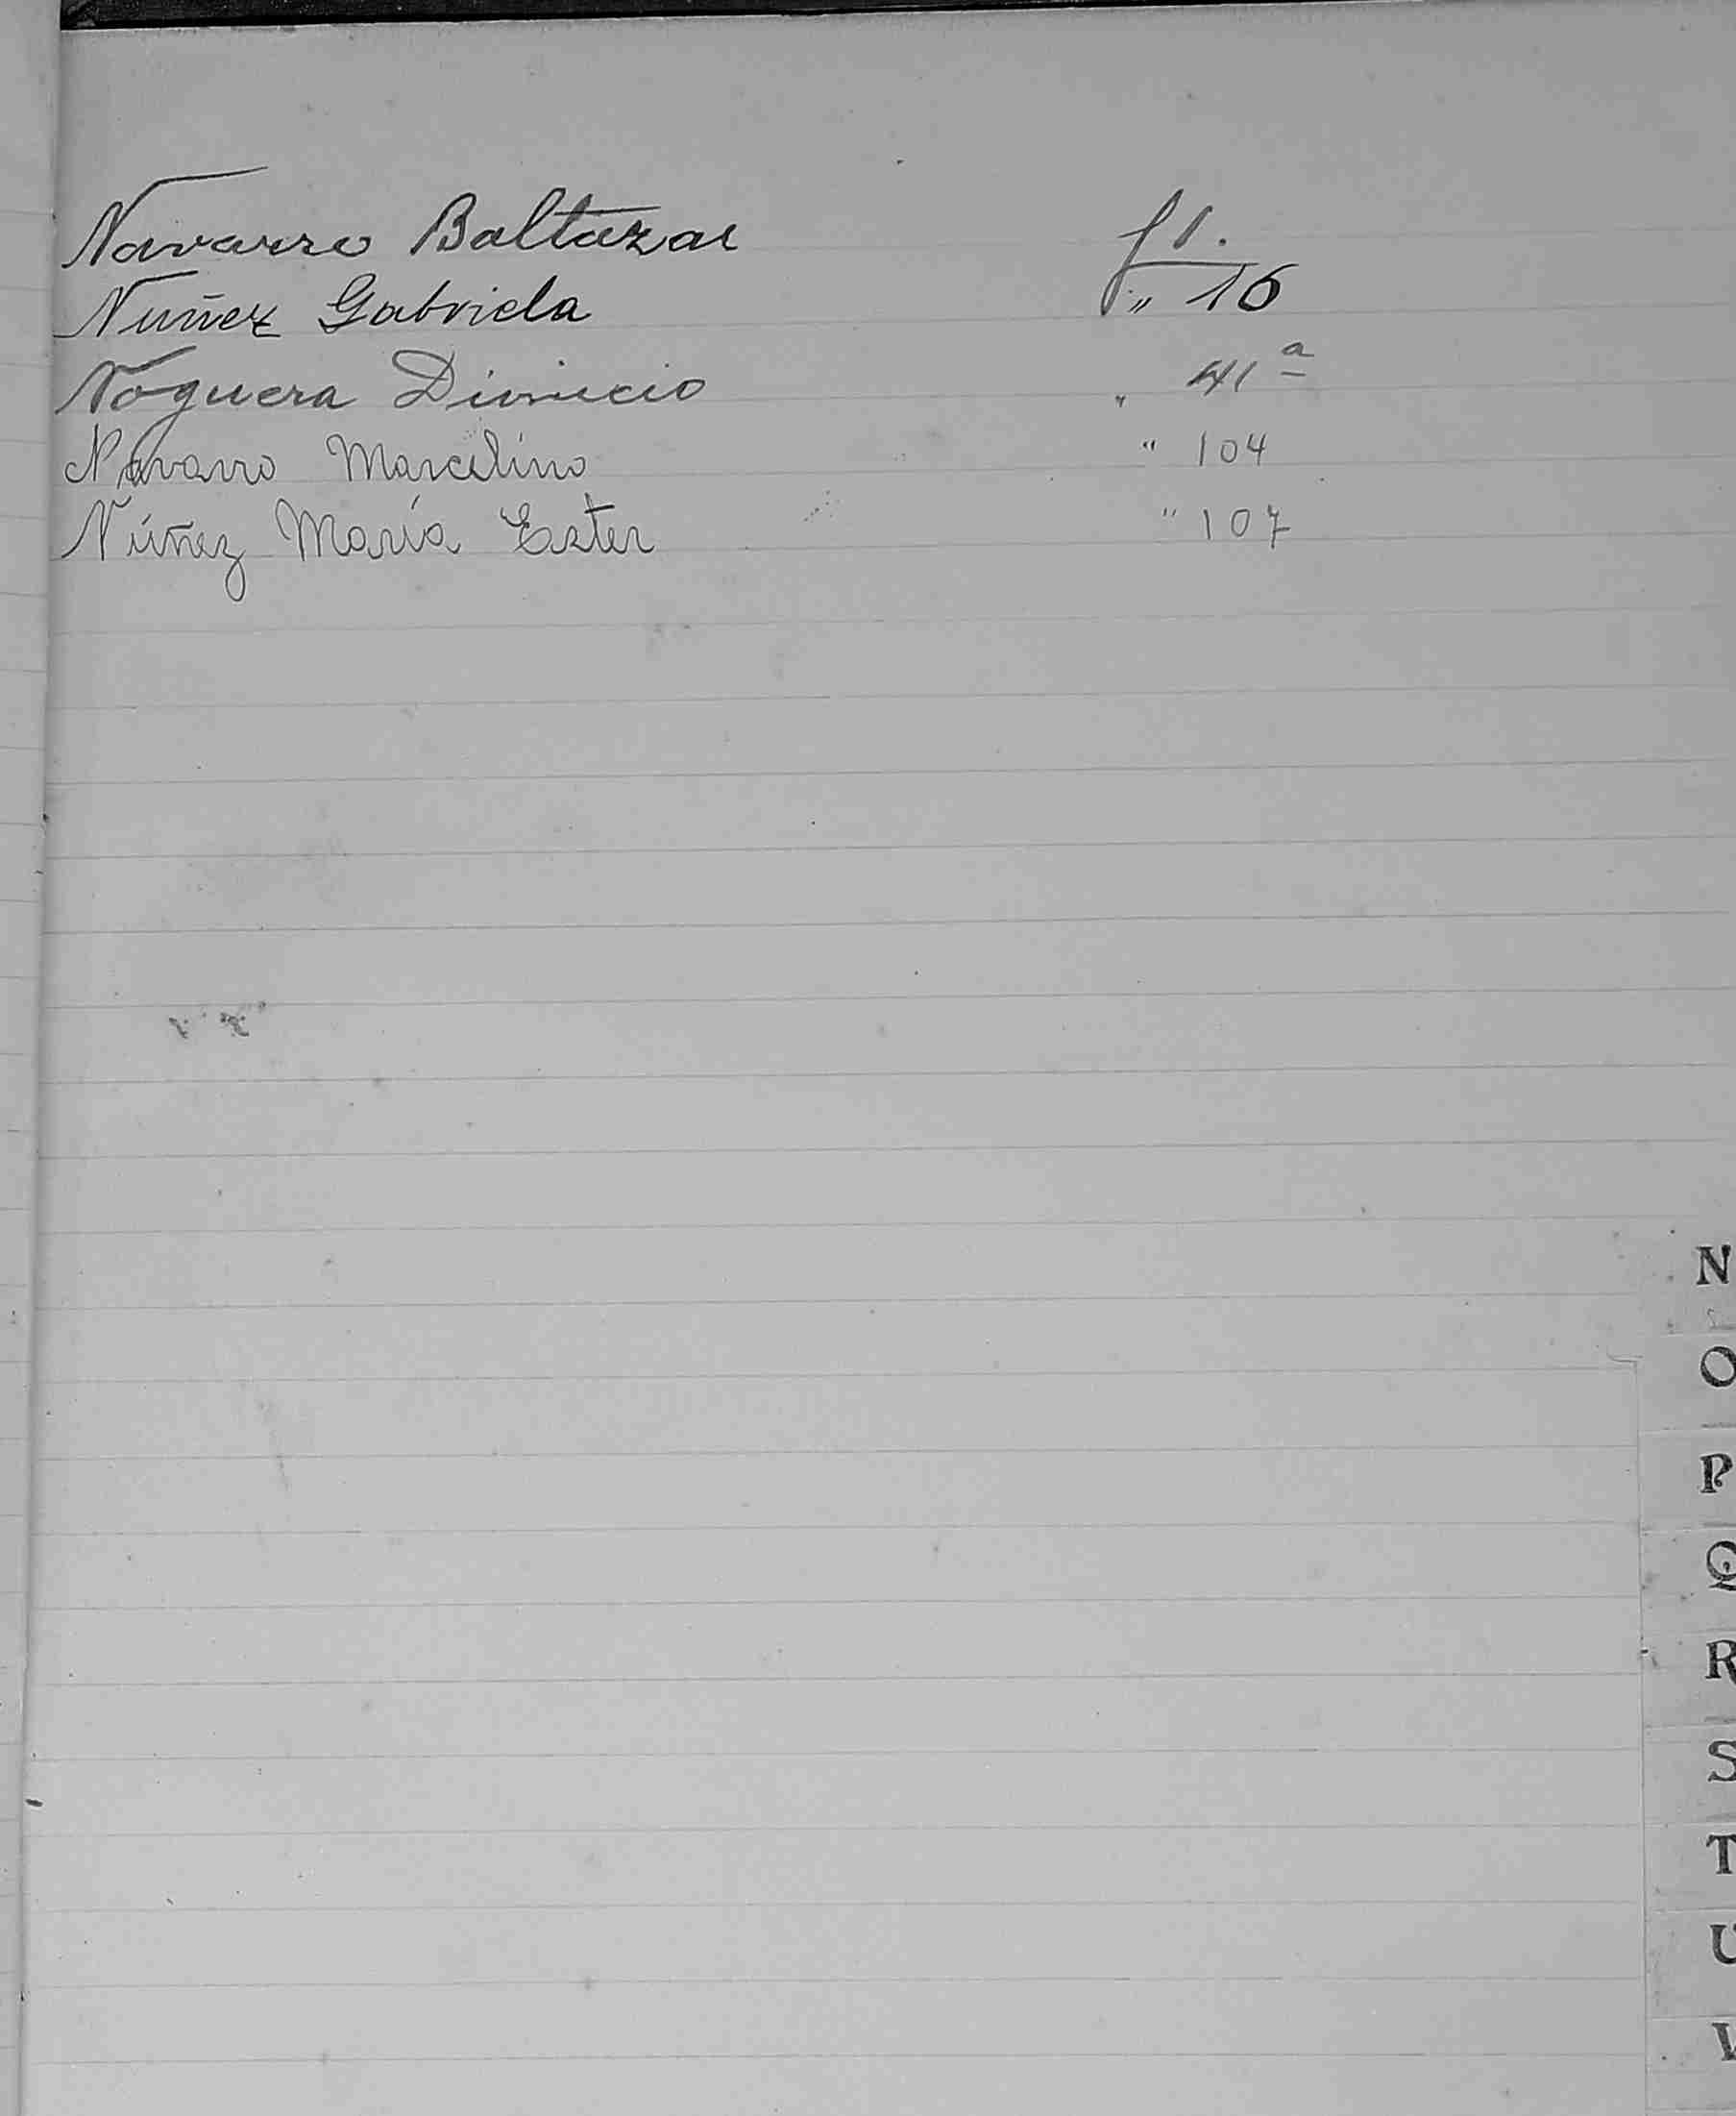 Navarro Baltazar f 1.
Nuñez Gabriela " 16
Noguera Dionicio " 41 a
Navarro Marcelino " 104
Núñez María Ester " 107
N
O
P
Q
R
S
T
U
V